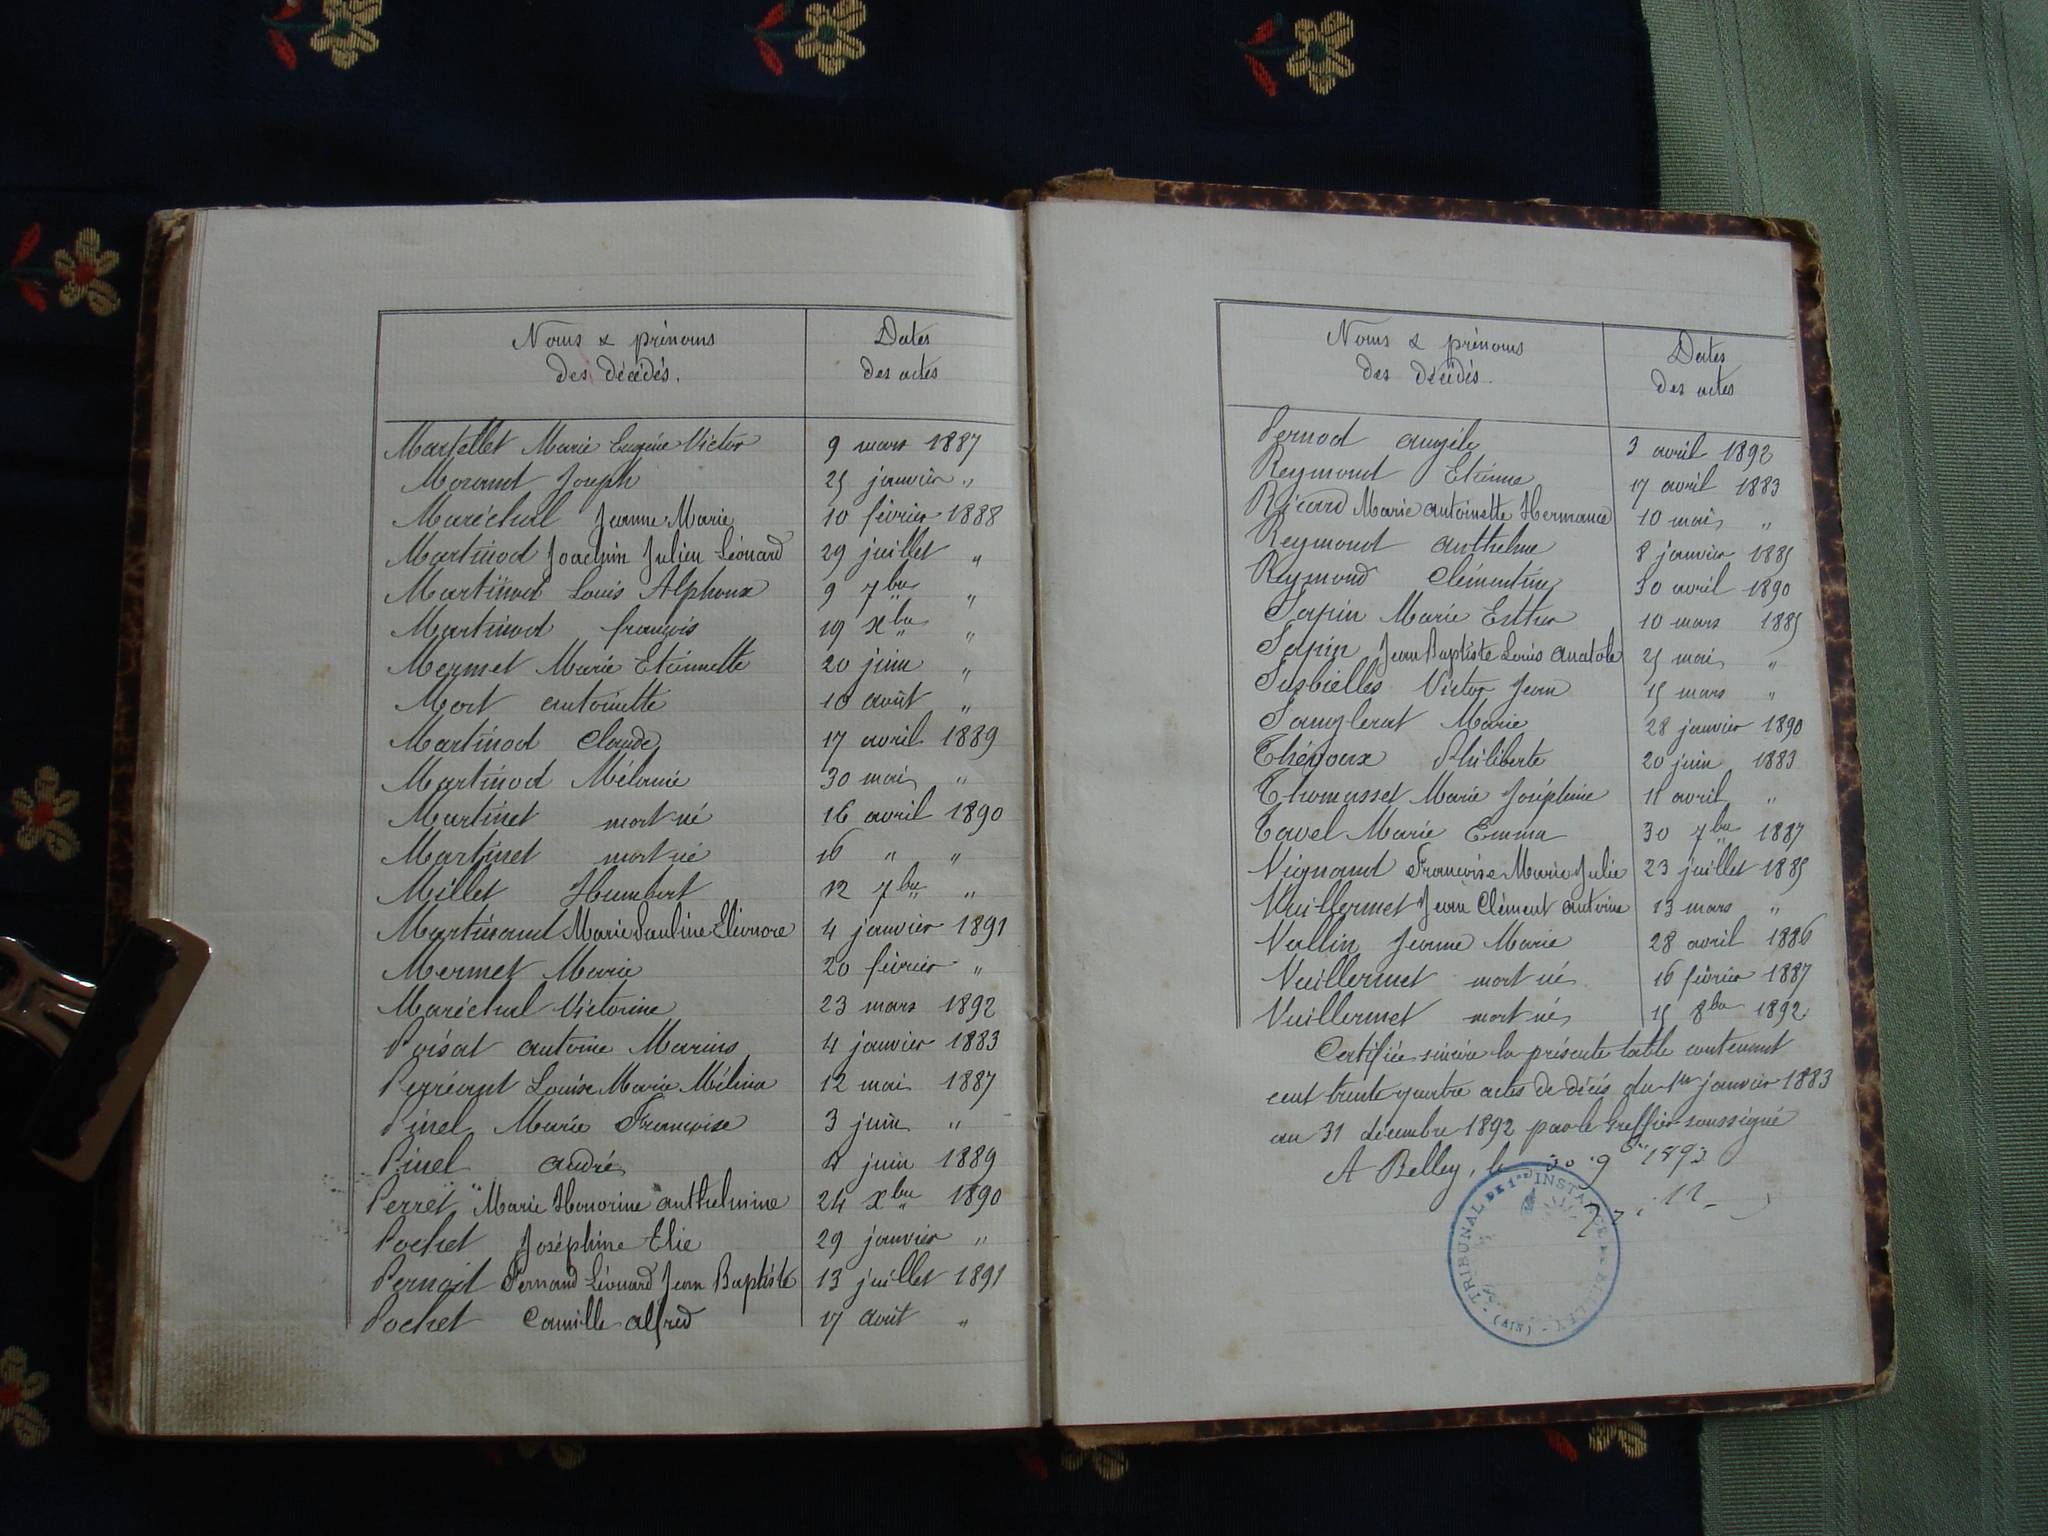 Noms & prénoms
des décédés.
Dates
des actes
Martellet Marie Eugène Victor 9 mars 1887
Morand Joseph 25 janvier "
Maréchal Jeanne Marie 10 février 1888
Martinod Joachin Julien Léonard 29 juillet "
Martinod Louis Alphonse 9 7bre "
Martinod françois 19 Xbre "
Mermet Marie Etiennette 20 juin "
Mort antoinette 10 août "
Martinod Claude 17 avril 1889
Martinod Mélanie 30 mai "
Martinet mort né 16 avril 1890
Martinet mort né 16 " "
Millet Humbert 12 7bre "
Martinand Marie Pauline Eléonore 4 janvier 1891
Mermet Marie 20 février "
Maréchal Victorine 23 mars 1892
Poisat antoine Marius 4 janvier 1883
Perréant Louise Marie Mélina 12 mai 1887
Pinel Marie Françoise 3 juin "
Pinel André 4 juin 1889
Perret Marie Honorine anthelmine 24 Xbre 1890
Pochet Joséphine Elie 29 janvier "
Pernod Fernand Léonard Jean Baptiste 13 juillet 1891
Pochet Camille alfred 17 août "
Noms & prénoms
des décédés.
Dates
des actes
Pernod angèle 3 avril 1892
Reymond Etienne 17 avril 1883
Ricard Marie antoinette Hermance 10 mai "
Reymond anthelme 8 janvier 1885
Reymond Clémentine 30 avril 1890
Sapin Marie Esther 10 mars 1885
Sapin Jean Baptiste Louis anatole 25 mai "
Susbielles Victor Jean 15 mars "
Sanglerat Marie 28 janvier 1890
Thénoux Philiberte 20 juin 1883
Thomasset Marie Joséphine 11 avril "
Tavel Marie Emma 30 7bre 1887
Vignand Françoise Marie Julie 23 juillet 1885
Vuillermet Jean Clément antoine 13 mars "
Vallin Jeanne Marie 28 avril 1886
Vuillermet mort né 16 février 1887
Vuillermet mort né 15 8bre 1892
Certifiée sincère la présente table contenant
cent trente quatre actes de décès du 1er janvier 1883
au 31 décembre 1892 par le Greffier soussigné
A Belley, le 30 9bre 1893
TRIBUNAL DE 1re INSTANCE DE BELLEY (AIN)